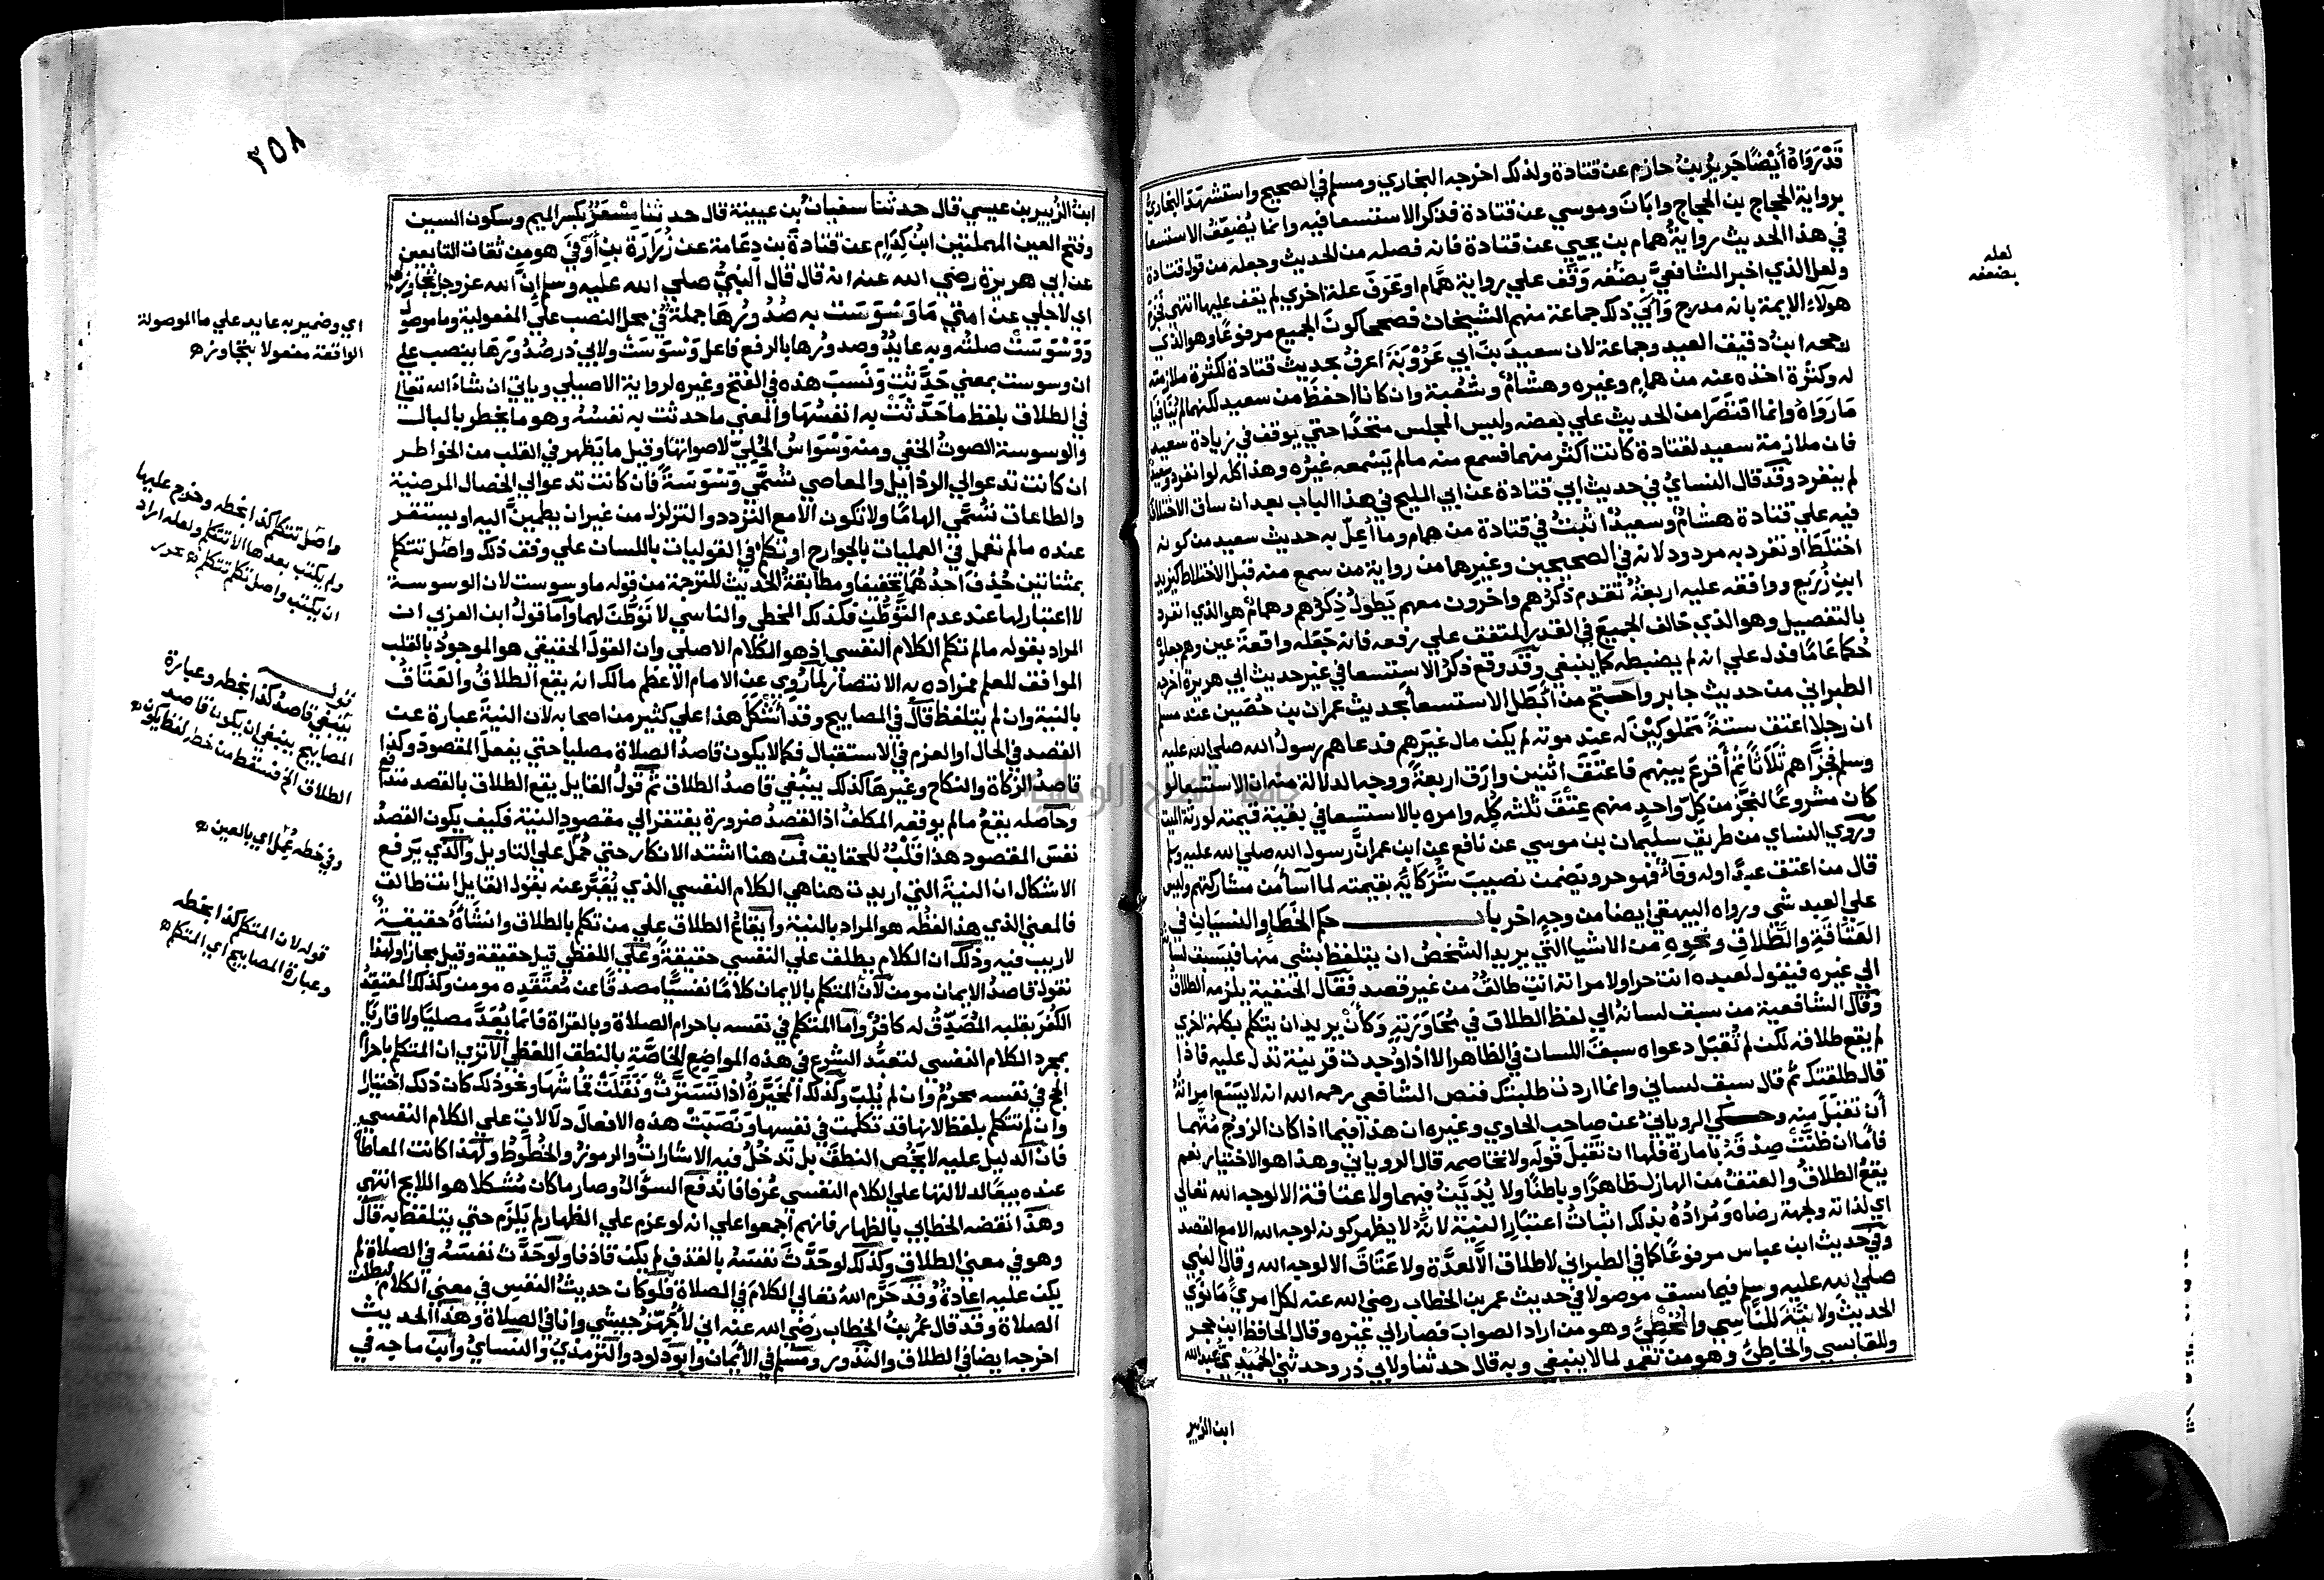 قَدْ رَوَاهُ أَيْضًا جَرِيرُ بنُ حازم عن قتادة ولذلك اخرجه البخاري ومسلم في الصحيح واستشهد البخاري
برواية الحجاج بن الحجاج وابان وموسي عن قتادة فذكر الاستسعا فيه وانما يُضعِّفُ الاستسعا
في هذا الحديث روايةُ همام بن يحيي عن قتادة فانه فصله من الحديث وجعله من قول قتادة
ولعل الذي اخبر الشافعيَّ بضعْفه وَقَفَ علي رواية همَّام او عَرَفَ علة اخري لم يقف عليها انتهي فجزم
هولاء الايمة بانه مدرج وَأَبَي ذلك جماعة منهم الشيخان فصححا كونَ الجميع مرفوعًا وهو الذي
رجحه ابنُ دقيق العيد وجماعة لان سعيدَ بنَ ابي عَرُوْبَةَ اعرفُ بحديث قتادة لكثرة ملازمته
له وكثرة اخذه عنه من همام وغيره وهشامٌ وشعبة وان كانا احفظَ من سعيد لكنهما لم يُنَافِيَا
مَا رَوَاهُ وانما اقتصَرَا من الحديث علي بعضه وليس المجلس متحدًا حتي يوقف في زيادة سعيد
فان ملازمة سعيد لقتادة كانت اكثر منهما فسمع منه مالم يَسْمعه غيرُه وهذا كله لو انفرد وسعيدٌ
لم ينفرد وقد قال النسايُ في حديث ابي قتادة عن ابي المليح في هذا الباب بعد ان ساق الاختلاف
فيه علي قتادة هشامٌ وسعيدٌ اثبتُ في قتادة من همام وما أُعِلَّ به حديث سعيد من كونه
اختلَطَ او تفرد به مردود لانه في الصحيحين وغيرهما من رواية من سمع منه قبل الاختلاط كيزيد
ابنِ زُرَيع ووافقه عليه اربعةٌ تقدم ذكرُهم واخرون معهم يَطولُ ذِكرُهم وهمامٌ هو الذي انفرد
بالتفصيل وهو الذي خالف الجميعَ في القدر المتفق علي رفعه فانه جَعَله واقعةَ عين وهم جعلوه
حُكمًا عامًا فدل علي انه لم يضبطه كما ينبغي وقد وقع ذكرُ الاستسعا في غير حديث ابي هريرة اخرجه
الطبراني من حديث جابر واحتج من أبْطَلَ الاستسعا بحديث عمران بن حُصَين عند مسلم
ان رجلا اعتق ستةً مَملوكِيْنَ له عند موته لم يكن مال غيرَهم فدعاهم رسولُ الله صلي الله عليه
وسلم فجَزَّاهم ثَلَاثًا ثم أَقرعَ بينهم فاعتقَ اثنين وارَق اربعةً ووجه الدلالة منه ان الاستسعا لو
كان مشروعًا لنجَّزَ من كلِّ واحدٍ منهم عِتْقَ ثلثه كله وامره بالاستسعا في بقية قيمته لورثة الميت
وروي النساي من طريق سليمان بن موسي عن نافع عن ابن عمر ان رسول الله صلي الله عليه وسلم
قال من اعتق عبدًا وله وَفَاءٌ فهو حر ويضمن نصيبَ شُرَكَايِه بقيمته لما اسآء من مشاركتهم وليس
علي العبد شي ورواه البيهقي ايضا من وجهٍ اخر باب حكم الخطإ والنسيان في
العَتَاقَةِ والطلاق ونحوه من الاشيا التي يريد الشخصُ ان يتلفظ بشي منها فيَسبق لسانُه
الي غيره فيقول لعبده انت حر او لامراته انت طالقٌ من غير قصد فقال الحنفية يلزمه الطلاقُ
وقال الشافعية من سبق لسانه الي لفظ الطلاق في مُحَاوَرَتِهِ وَكَانَ يريد ان يتكلم بكلمة اخري
لم يقع طلاقه لكن لم تُقبَل دعواه سبقَ اللسان في الظاهر الا اذا وُجدت قرينة تدل عليه فاذا
قال طلقتك ثم قال سبق لساني وانما اردت طلبتك فنص الشافعي رحمه الله انه لا يَسَعُ امراتَهُ
أن تقبلَ منه وحكي الروياني عن صاحب الحاوي وغيره ان هذا فيما اذا كان الزوجُ مُتَّهمًا
فامَّا ان ظنَّت صِدْقَهُ بامارة فلها ان تَقبَلَ قولَه ولا تخاصمه قال الروياني وهذا هو الاختيار نعم
يقعُ الطلاقُ والعتقُ من الهازل ظاهرًا وباطنًا ولا يُدَيَّنُ فيهما ولا عتاقة الا لوجه الله تعالي
اي لذاته ولجهة رضاه ومُرادُهُ بذلك اثباتُ اعتبارِ النيةِ لانَّه لا يظهر كونه لوجه الله الا مع القصد
وفي حديث ابن عباس مرفوعًا كما في الطبراني لا طلاق الا لعدَّة ولا عَتَاقَ الا لوجه الله وقال النبي
صلي الله عليه وسلم فيما سبق موصولا في حديث عمر بن الخطاب رضي الله عنه لكل امرئ مَا نوَي
الحديثَ ولا نيَّةَ للناسي والمُخطِئ وهو من اراد الصوابَ فصار الي غيره وقال الحافظ ابن حجر
وللقابسي والخاطئ وهو من تعمد لما لا ينبغي وبه قال حدثنا ولابي ذر وحدثني الحُمَيْدِيُّ عبدُ الله
ابن الزبير
لعله
بضعفه
٣٥٨
ابنُ الزُّبير بن عيسي قال حدثنا سفيانُ بن عيينة قال حدثنا مِسْعَرٌ بكسر الميم وسكون السين
وفتح العين المهملتين ابنُ كِدَامٍ عن قتادةَ بن دِعَامة عن زُرَارَةَ بنِ أَوْفَي هو من ثقات التابعين
عن ابي هريرة رضي الله عنه انه قال قال النبيُّ صلي الله عليه وسلم ان الله عز وجل تجاوز لي
اي لاجلي عن امتي مَا وَسْوَسَت به صُدُورُها جملةٌ في محل النصب علي المفعولية وما موصول
وَوَسْوَسَتْ صلته وبه عايدٌ وصدورُها بالرفع فاعل وَسْوَسَتْ ولابي ذر صُدُورَهَا بنصب علي
ان وسوست بمعني حَدَّثَتْ وَنَسبَ هذه في الفتح وغيره لرواية الاصيلي وياتي ان شاءَ الله تعالي
في الطلاق بلفظ ما حَدَّثَتْ به انفسُهَا والمعني ما حدثت به نفسُه وهو ما يخطر بالبال
والوسوسة الصوتُ الخفي ومنه وَسْوَاسُ الحُلِيِّ لاصواتها وقيل ما يَظهر في القلب من الخواطر
ان كانت تدعو الي الرذايل والمعاصي تُسَمَّي وَسْوَسَةً فان كانت تدعو الي الخصال المرضية
والطاعات تُسَمَّي الهامًا ولا تكون الا مع التردد والتزلزل من غير ان يطمينَّ اليه او يستقر
عنده مالم تعمل في العمليات بالجوارح او تكلمْ في القوليات باللسان علي وفق ذلك واصلُ تتكلم
بمثناتين حُذِفَ احدُهُما تخفيفا ومطابقةُ الحديث للترجمة من قوله ما وسوست لان الوسوسة
لا اعتبار لها عند عدم التَّوَطُّنِ فكذلك المخطي والناسي لا تَوَطُّنَ لهما وأما قولُ ابن العربي ان
المراد بقوله مالم تكلم الكلامُ النفسي اذ هو الكلام الاصلي وان القولَ الحقيقي هو الموجودُ بالقلب
الموافق للعلم فمراده به الانتصارُ لِمَا رُوي عن الامام الأعظم مالك انه يقع الطلاقُ والعَتَاقُ
بالنية وان لم يتلفظ قال في المصابيح وقد أَشْكَلَ هذا علي كثير من اصحابه لان النيةَ عبارة عن
القصد في الحال او العزم في الاستقبال فكما لا يكون قاصدُ الصلاة مصليا حتي يفعلَ المقصود وكذا
قاصِدُ الزكاة والنكاح وغيرها كذلك ينبغي قاصدُ الطلاق ثم قولُ القايل يقع الطلاق بالقصد متدافع
وحاصله يقعُ مالم يوقعه المكلفُ اذ القصدُ ضرورة يفتقر الي مقصودِ النية فكيف يكون القصدُ
نفسَ المقصود هذا قَلْبٌ للحقايق فمن هنا اشتد الانكار حتي حُمِلَ علي التاويل والذي يَرفع
الاشكال ان النيةَ التي اريدت هنا هي الكلام النفسي الذي يُعَبَّر عنه بقول القايل انت طالق
فالمعني الذي هذا لفظُه هو المراد بالنية وايقاعُ الطلاق علي من تكلم بالطلاق وانشأَهُ حقيقةً
لا ريب فيه وذلك ان الكلام يطلق علي النفسي حقيقةً وعلي اللفظي قيل حقيقة وقيل مجازا ولهذا
نقول قاصدُ الايمان مومن لأن المتكلم بالايمان كلامًا نفسيًّا مصدقًا عن مُعتَقَدِه مومن وكذلك المعتقدُ
الكُفْرَ بقلبه المُصَدِّقُ له كافرٌ واما المتكلم في نفسه باحرام الصلاة وبالقراة فانما يُعَدَّ مصليًا ولا قاريًا
بمجرد الكلام النفسي لتعبُّد الشرع في هذه المواضع الخاصَّة بالنطق اللفظي الا تري ان المتكلم باحرام
الحج في نفسه محرمٌ وان لم يُلبِّ وكذلك المُخَيَّرةُ اذا تَستَّرَتْ ونَقَلَتْ قُمَاشَهَا ونحو ذلك كان ذلك اختيارا
وان لم تتكلم بلفظ لانها قد تكلمت في نفسها ونَصَبَتْ هذه الافعالَ دلالاتٍ علي الكلام النفسي
فان الدليل عليه لا يَختص النطقَ بل تَدخُلُ فيه الاشاراتُ والرموزُ والخُطُوطُ ولهذا كانت المعاطاة
عنده بيعًا لدلالتها علي الكلام النفسي عُرفا فاندفع السؤالُ وصار ما كان مُشكلا هو اللايح انتهي
وهذا نقضه الخطابي بالظهار فانهم اجمعوا علي انه لو عزم علي الظهار لم يَلزَم حتي يتلفظ به قال
وهو في معني الطلاق وكذلك لو حَدَّثَ نفسَهُ بالقذف لم يكن قاذفا ولو حَدَّثَ نفسَهُ في الصلاة لم
يكن عليه اعادةٌ وقد حَرَّم اللهُ تعالي الكلامَ في الصلاة فلو كان حديثُ النفس في معني الكلام لبطلت
الصلاة وقد قال عُمَرُ بنُ الخطاب رَضي الله عنه اني لأُجَهِّزُ جيشي وانا في الصلاة وهذا الحديث
اخرجه ايضا في الطلاق والنذور ومسلم في الأيمان وابوداود والترمذيُّ والنسايُّ وابن ماجه في
اي وضمير به عايد علي ما الموصولة
الواقعة مفعولا بتجاوز ه
واصل تتكلم كذا بخطه وخرج عليها
ولم يكتب بعدها الا تتكلم ولعله اراد
ان يكتب واصل تكلم تتكلم ه محرر
قوله
ينبغي قاصدُ كذا بخطه وعبارة
المصابيح ينبغي ان يكون قاصد
الطلاق الخ فسقط من خطه لفظ يكون ه
وفي خطه عُمِلَ اي بالعين ه
قوله لان المتكلم كذا بخطه
وعبارة المصابيح اي المتكلم ه